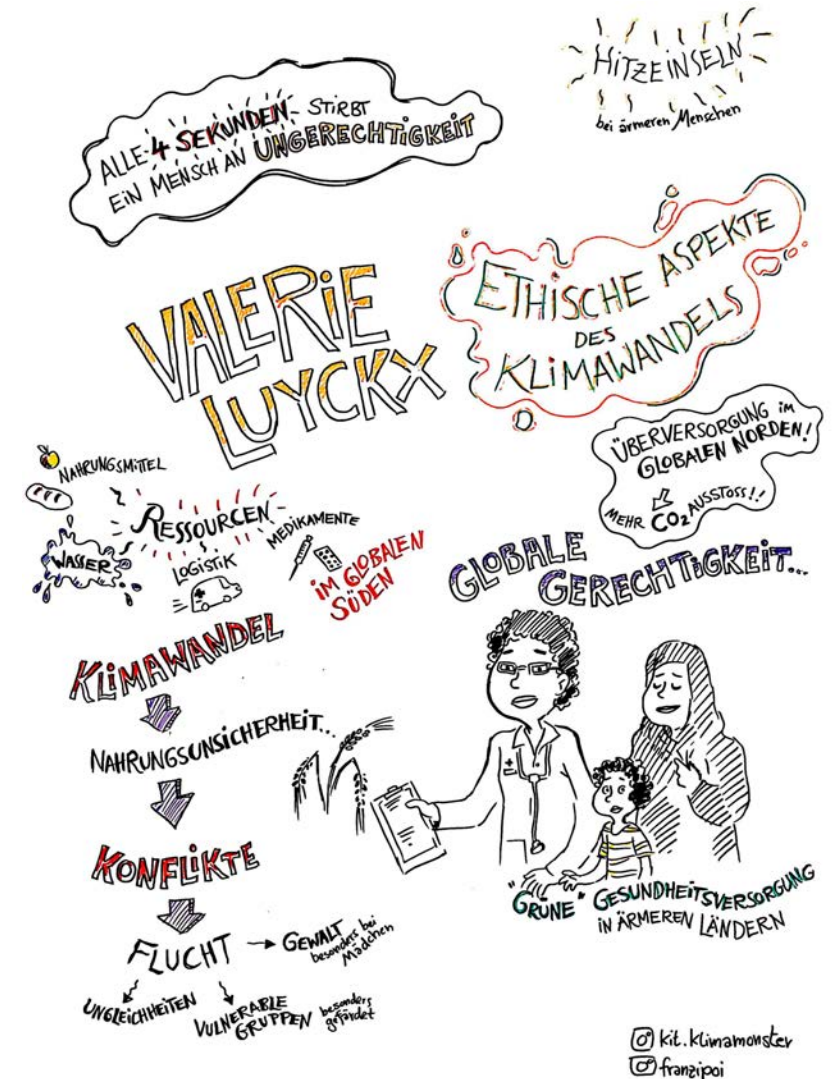 HITZEINSELN
bei ärmeren Menschen
ALLE 4 SEKUNDEN STIRBT
EIN MENSCH AN UNGERECHTIGKEIT
VALERIE
LUYCKX
ETHISCHE ASPEKTE
DES
KLIMAWANDELS
ÜBERVERSORGUNG IM
GLOBALEN NORDEN!
MEHR CO2 AUSSTOSS!!
NAHRUNGSMITTEL
RESSOURCEN
WASSER
LOGISTIK
MEDIKAMENTE
IM GLOBALEN
SÜDEN
GLOBALE
GERECHTIGKEIT...
KLIMAWANDEL
NAHRUNGSUNSICHERHEIT...
KONFLIKTE
FLUCHT
GEWALT
besonders bei
Mädchen
UNGLEICHHEITEN
VULNERABLE
GRUPPEN
besonders
gefärdet
"GRÜNE" GESUNDHEITSVERSORGUNG
IN ÄRMEREN LÄNDERN
kit.klimamonster
franzipoi